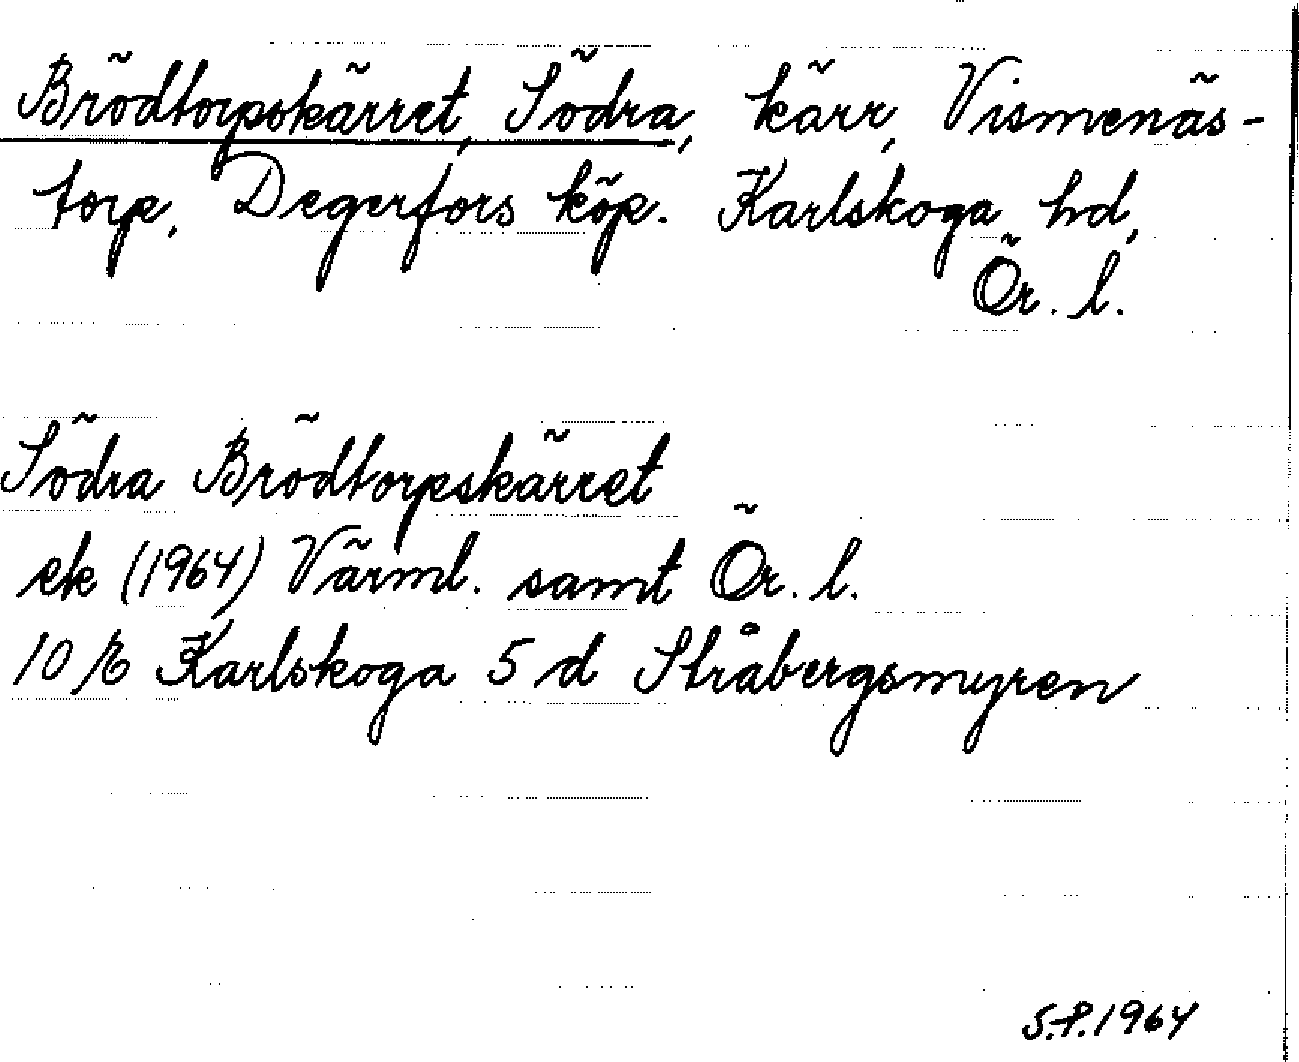 Brödtorpskärret, Södra, kärr, Vismenäs-
torp, Degerfors köp. Karlskoga hd,
Ör. l.
Södra Brödtorpskärret
ek (1964) Värml. samt Ör. l.
10 E Karlskoga 5 d Stråbergsmyren
S.P. 1964